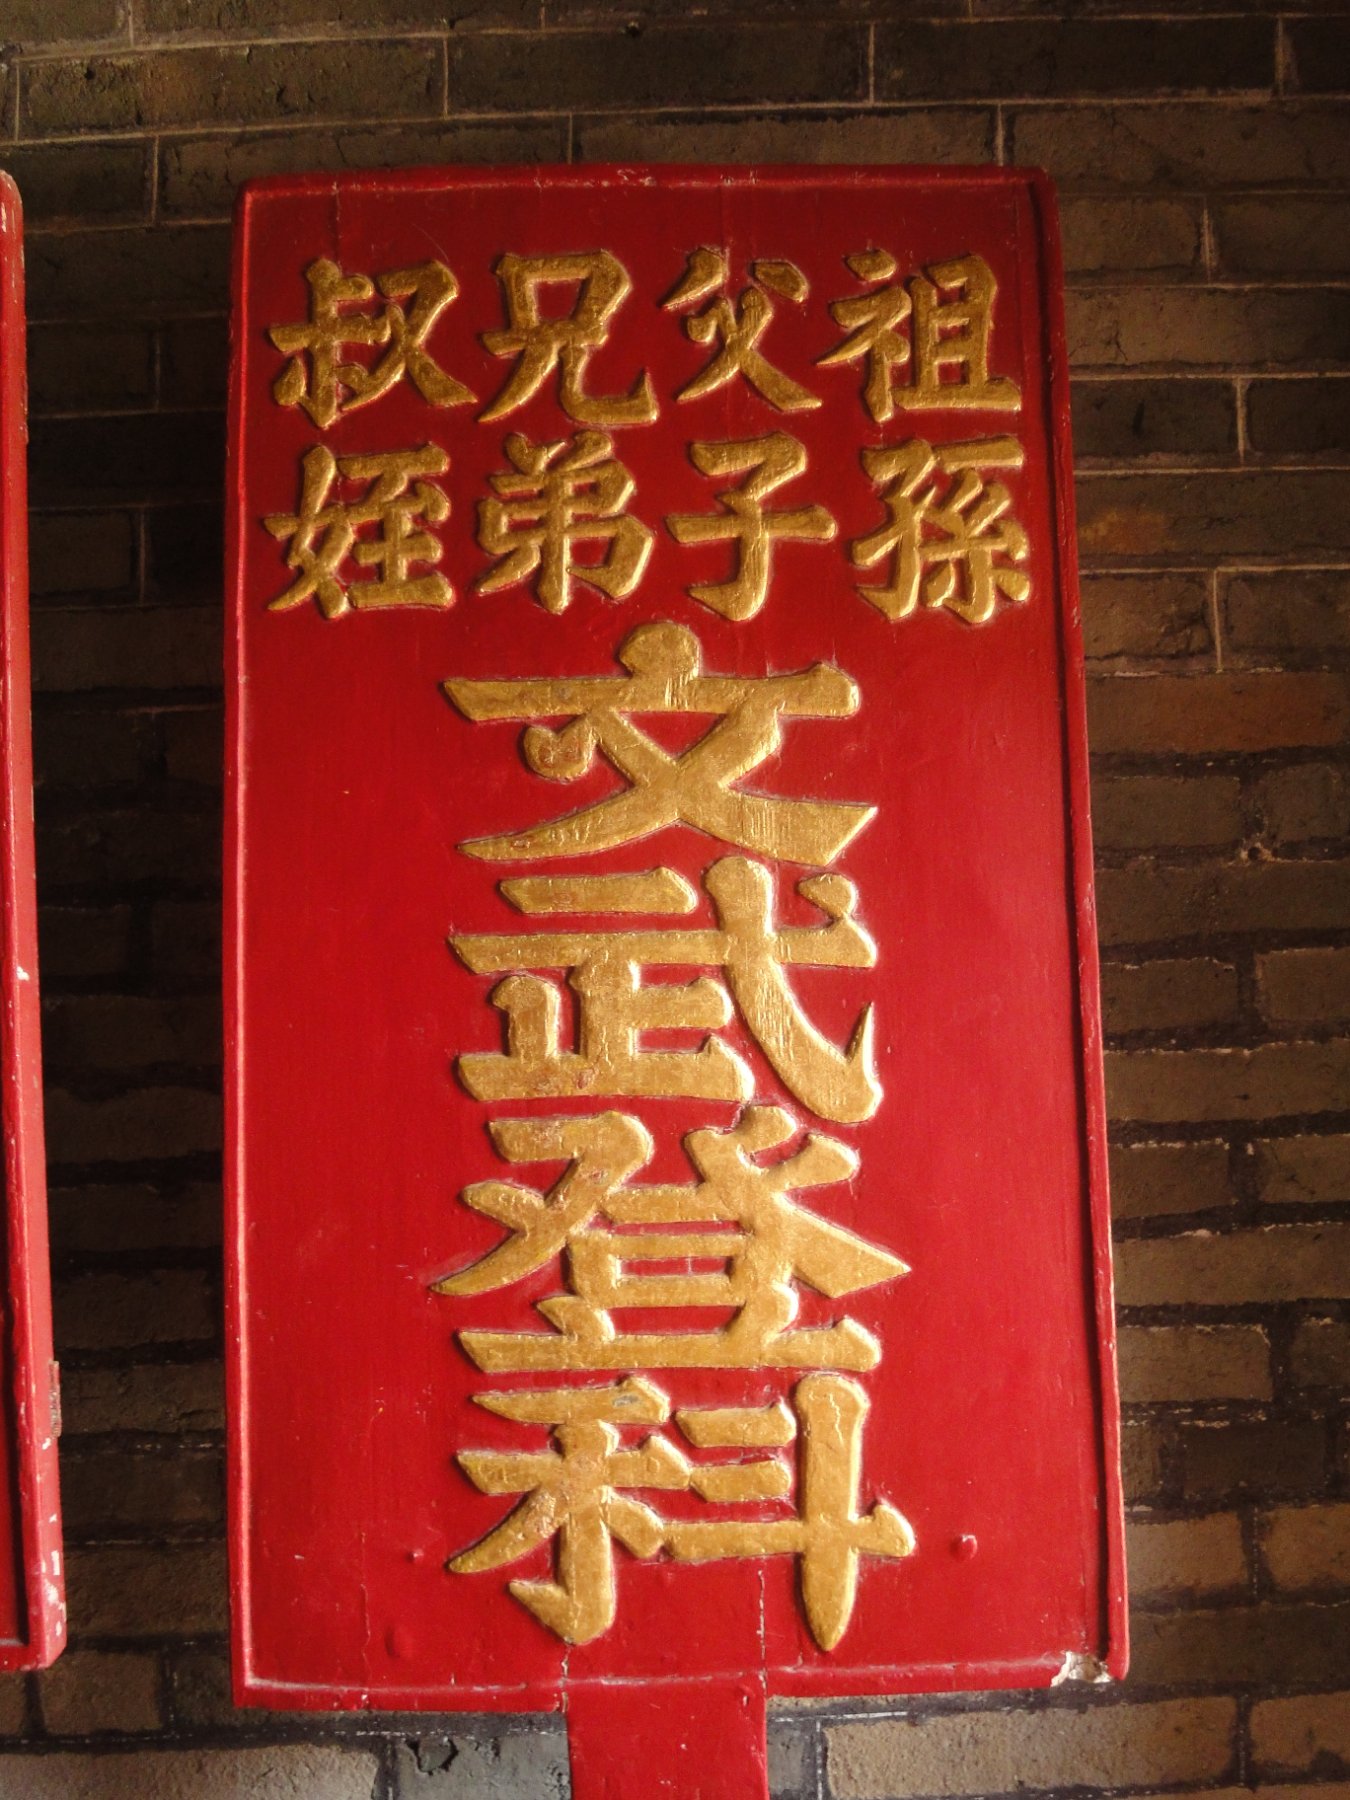 祖孫
父子
兄弟
叔姪
文武登科